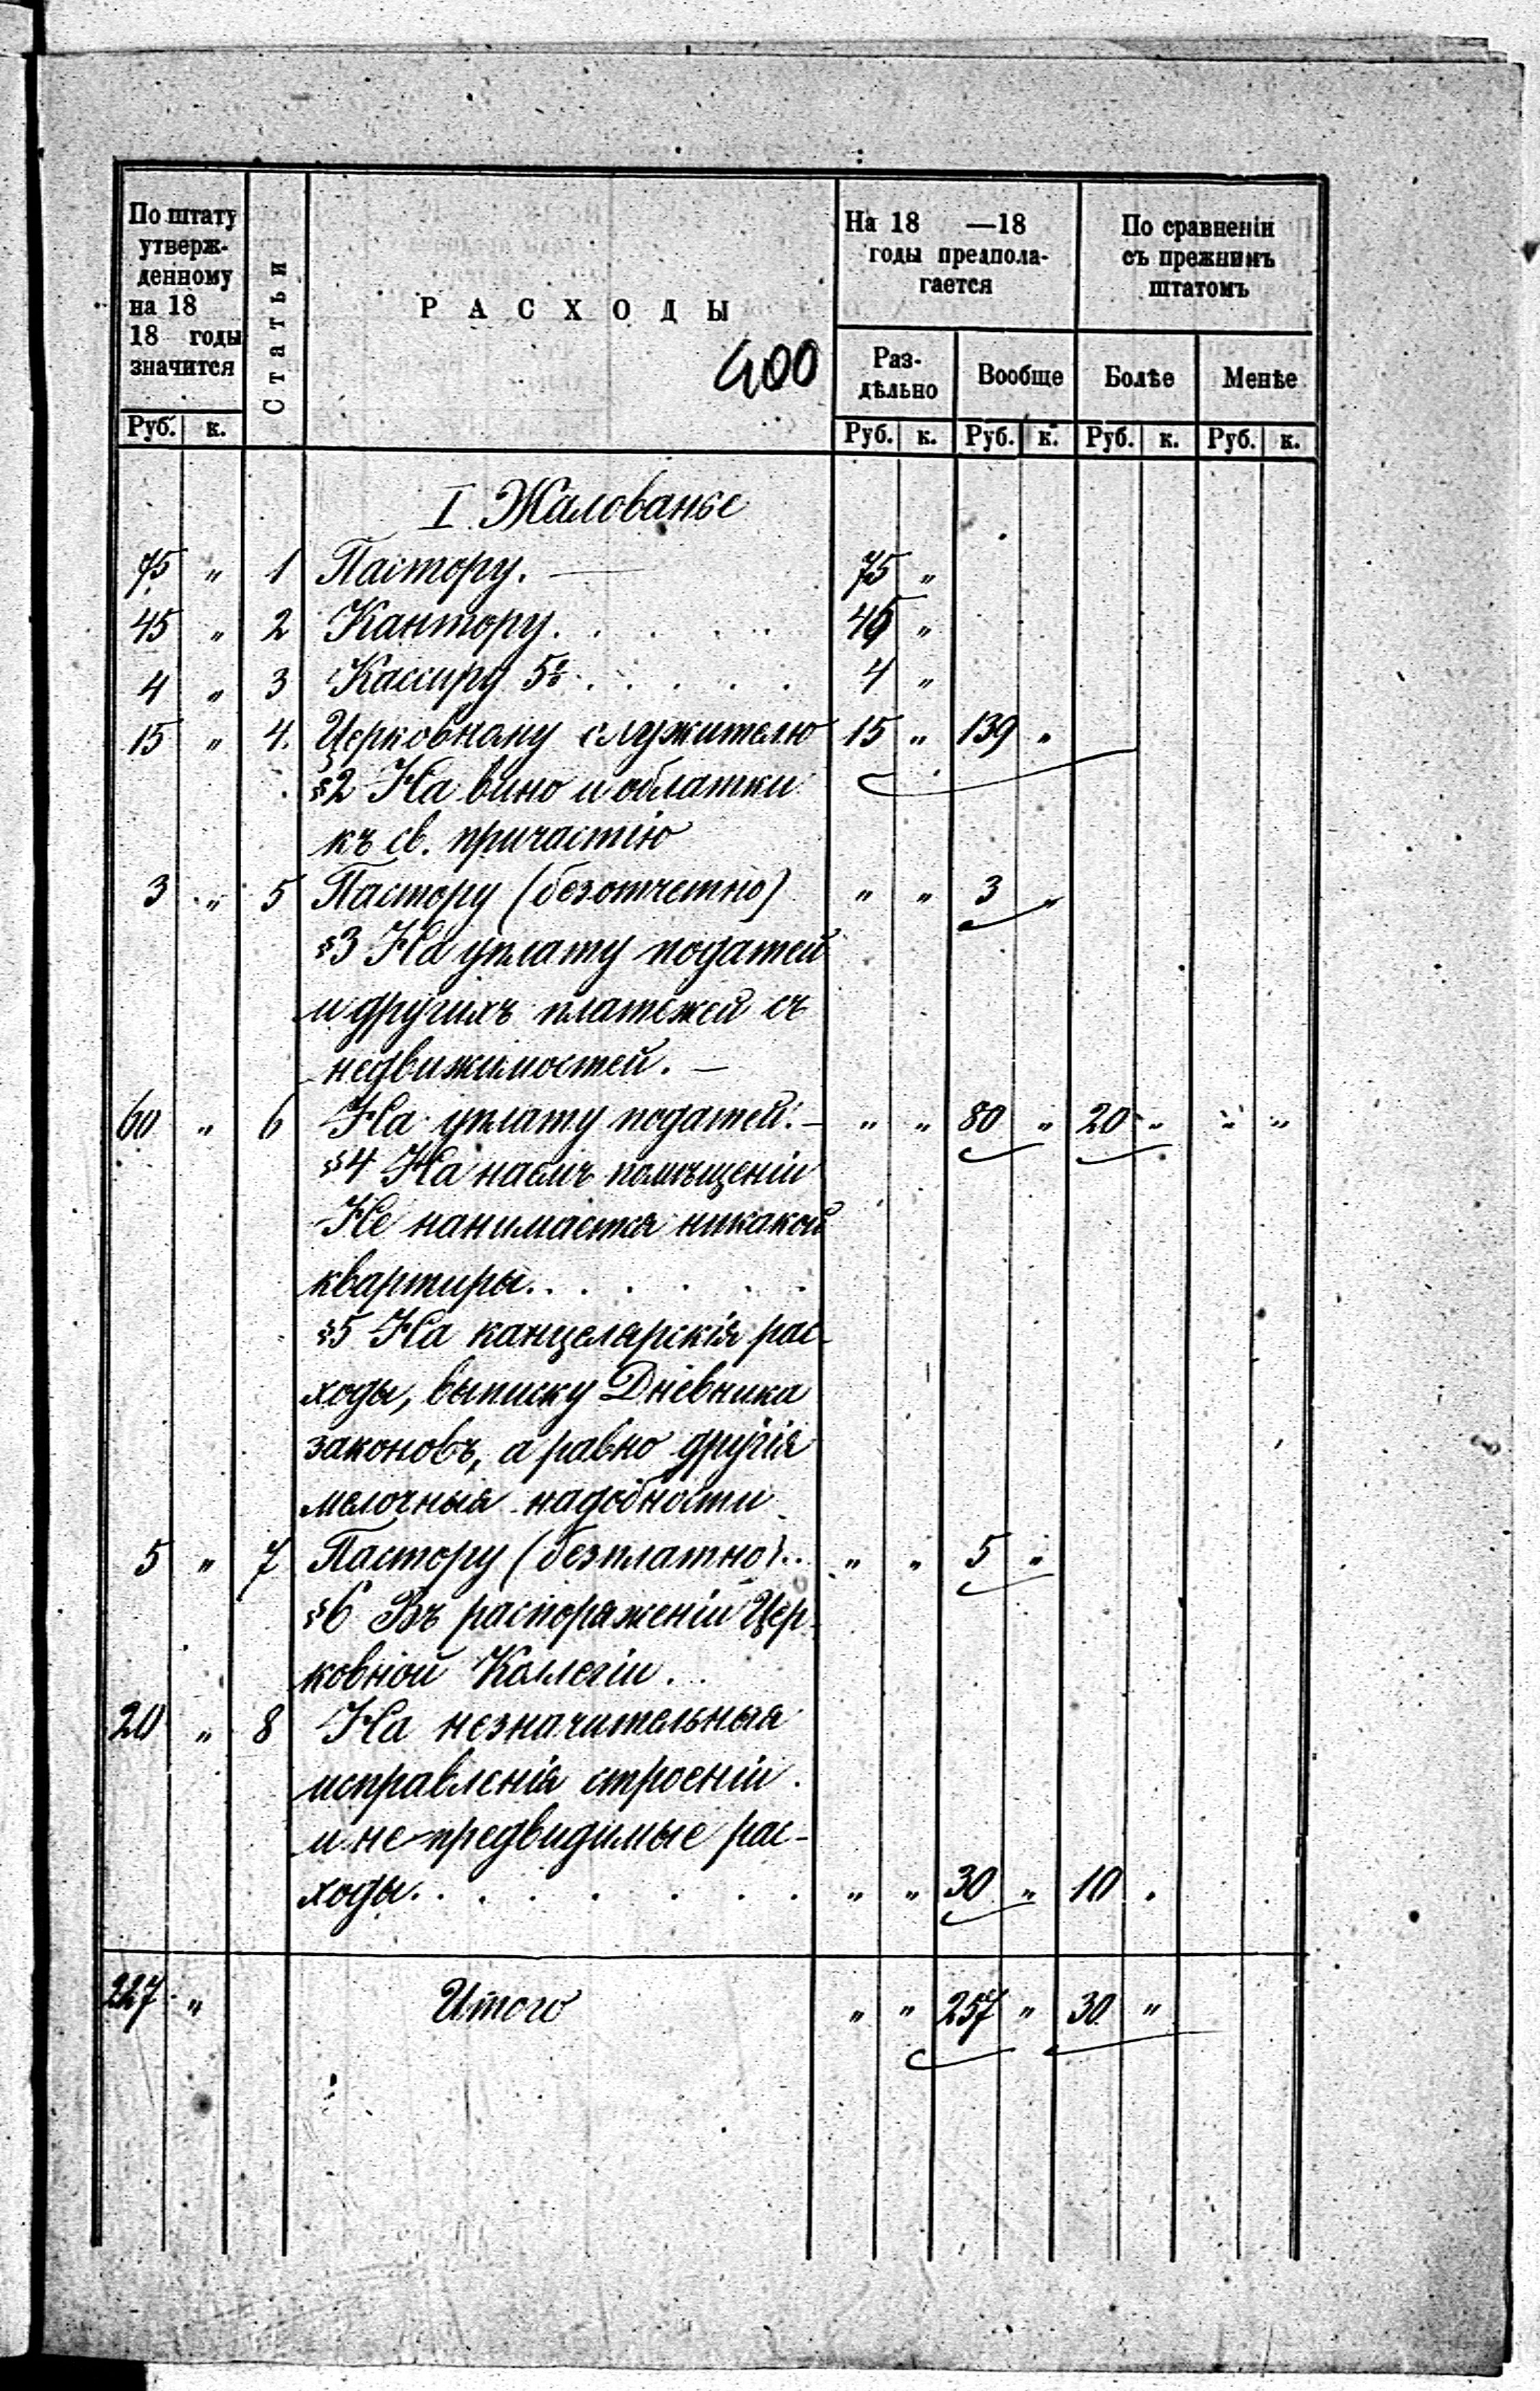 По штату
утверж-
денному
на 18
18 годы
значится
Статьи
РАСХОДЫ
400
На 18 —18
годы предпола-
гается
По сравненіи
съ прежнимъ
штатомъ
Раз-
дѣльно
Вообще
Болѣе
Менѣе
Руб. к.
Руб. к. Руб. к. Руб. к. Руб. к.
I. Жалованье
75 „ 1 Пастору. — 75 „
45 „ 2 Кантору. . . . . . 45 „
4 „ 3 Кассиру 5% . . . . . 4 „
15 „ 4. Церковному служителю 15 „ 139 „
§2 На вино и облатки
къ св. причастію
3 „ 5 Пастору (безотчетно) „ „ 3 „
§3 На уплату податей
и другихъ платежей съ
недвижимостей. —
60 „ 6 На уплату податей. — „ „ 80 „ 20 „ „ „
§4 На наемъ помѣщеній
Не нанимается никакой
квартиры. . . . . . .
§5 На канцелярскія рас-
ходы, выписку Дневника
законовъ, а равно другія
мелочныя надобности
5 „ 7 Пастору (безплатно). . . „ „ 5 „
§6 Въ распоряженіи Цер-
ковной Коллегіи. . .
20 „ 8 На незначительныя
исправленія строеній
и не предвидимые рас-
ходы. . . . . . . . „ „ 30 „ 10 „
227 „ Итого „ „ 257 „ 30 „